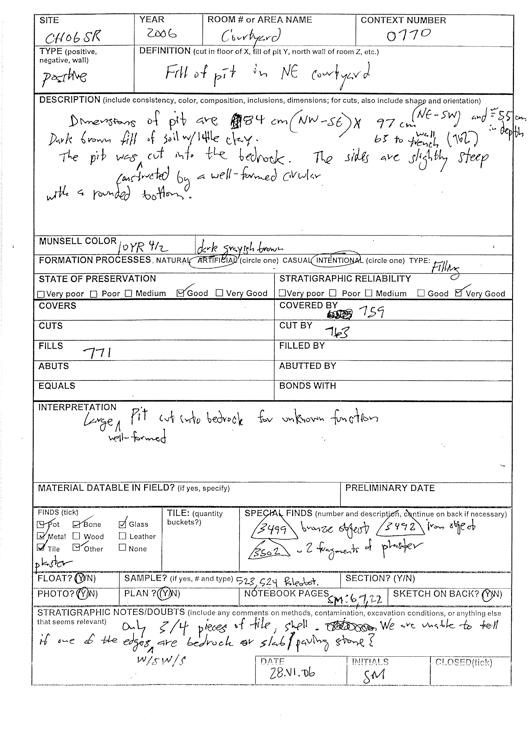 SITE YEAR ROOM # or AREA NAME CONTEXT NUMBER
CH06SR 2006 Courtyard 0770
TYPE (positive, negative, wall) DEFINITION (cut in floor of X, fill of pit Y, north wall of room Z, etc.)
positive Fill of pit in NE courtyard
DESCRIPTION (include consistency, color, composition, inclusions, dimensions; for cuts, also include shape and orientation)
Dimensions of pit are 84 cm (NW-SE) X 97 cm (NE-SW) and = 55 cm in depth
65 to wall trench (762)
Dark brown fill of soil w/ little clay.
The pit was cut into the bedrock. The sides are slightly steep
constructed by a well-formed circular
with a rounded bottom.
MUNSELL COLOR 10YR 4/2 dark grayish brown
FORMATION PROCESSES: NATURAL ARTIFICIAL (circle one) CASUAL INTENTIONAL (circle one) TYPE: Filling
STATE OF PRESERVATION STRATIGRAPHIC RELIABILITY
Very poor Poor Medium Good Very Good Very poor Poor Medium Good Very Good
COVERS COVERED BY 759
CUTS CUT BY 763
FILLS 771 FILLED BY
ABUTS ABUTTED BY
EQUALS BONDS WITH
INTERPRETATION
Large, well-formed Pit cut into bedrock for unknown function
MATERIAL DATABLE IN FIELD? (if yes, specify) PRELIMINARY DATE
FINDS (tick) TILE: (quantity buckets?) SPECIAL FINDS (number and description, continue on back if necessary)
Pot Bone Glass 3499 bronze object 3492 iron object
Metal Wood Leather
Tile Other None 3502 - 2 fragments of plaster
plaster
FLOAT? (Y/N) SAMPLE? (if yes, # and type) 523, 524 Paleobot. SECTION? (Y/N)
PHOTO? (Y/N) PLAN? (Y/N) NOTEBOOK PAGES SM: 67,22 SKETCH ON BACK? (Y/N)
STRATIGRAPHIC NOTES/DOUBTS (include any comments on methods, contamination, excavation conditions, or anything else that seems relevant)
Only 3/4 pieces of tile, shell. We are unable to tell
if one of the edges are bedrock or slab/paving stone?
W/SW/S
DATE INITIALS CLOSED(tick)
28.VI.06 SM